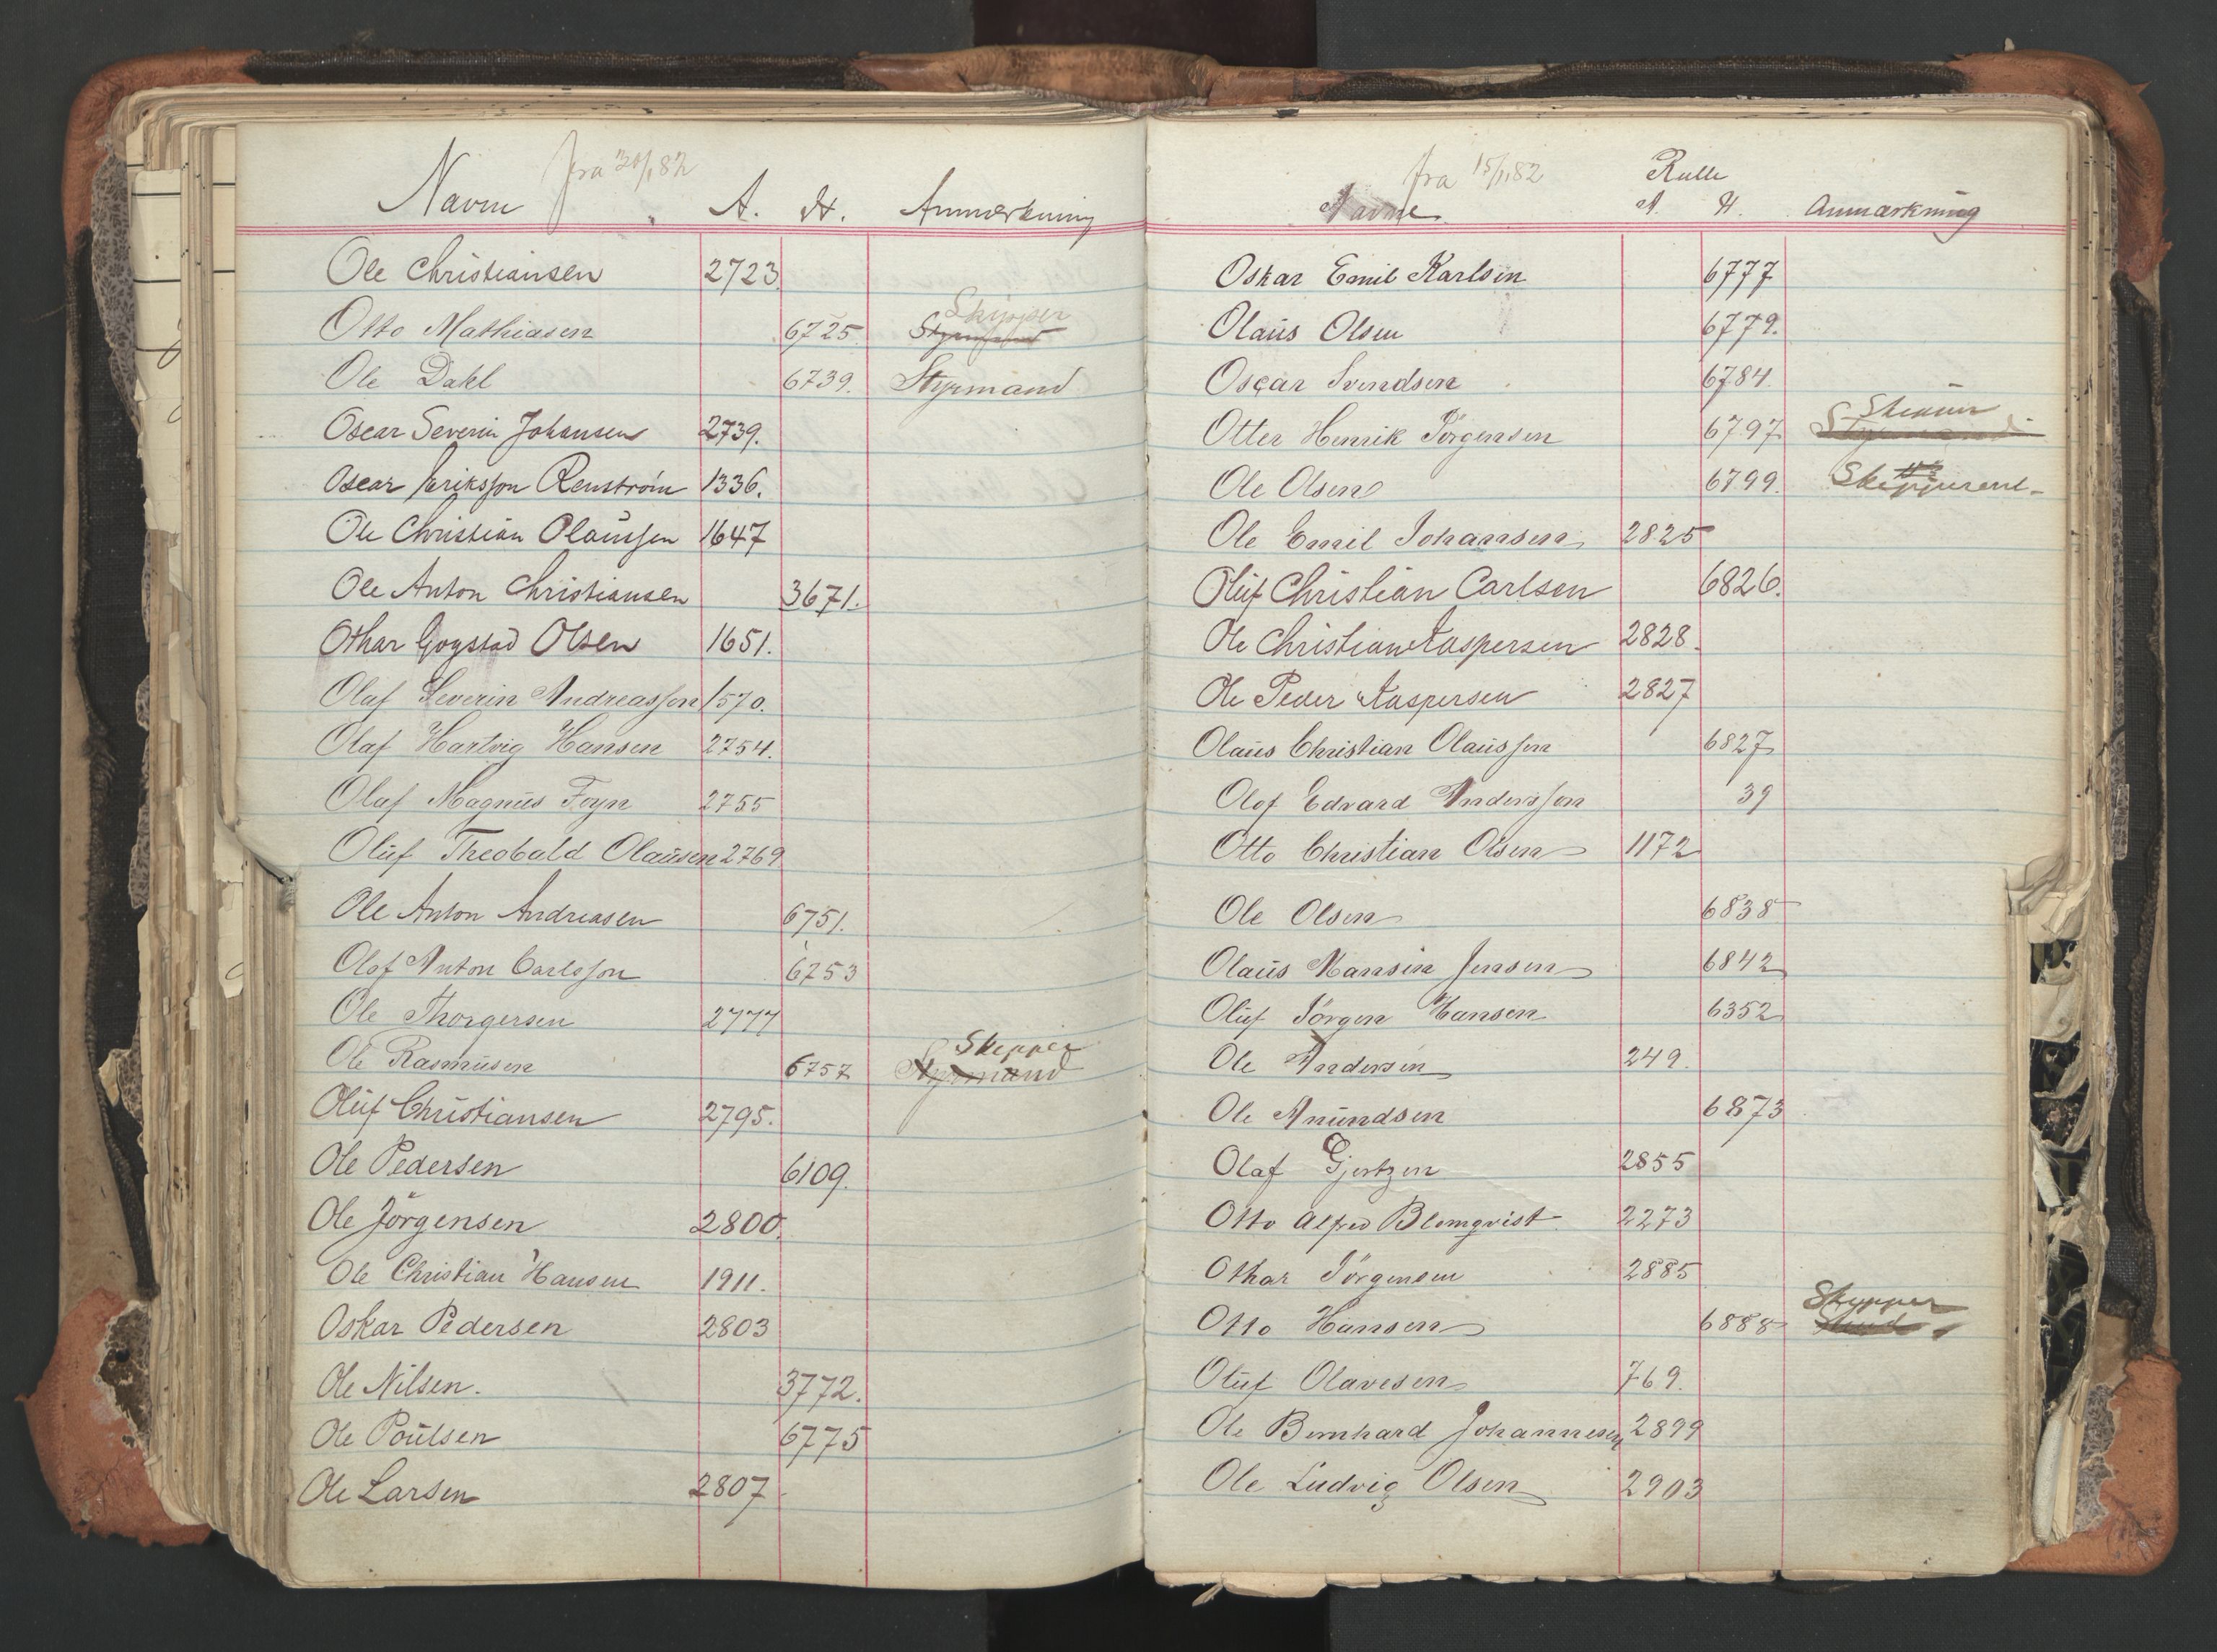 fra 20/1 82
Navn A. H. Anmerkning
Ole Christiansen 2723.
Skipper
Otto Mathiasen 6725 Styrmand
Ole Dahl 6739. Styrmand
Oscar Severin Johansen 2739.
Oscar Eriksson Renström 1336.
Ole Christian Olaussen 1647
Ole Anton Christiansen 3671.
Othar Gogstad Olsen 1651.
Olaf Severin Andreasson 1570.
Olaf Hartvig Hansen 2754.
Olaf Magnus Foyn 2755
Oluf Theobald Olausen 2769
Ole Anton Andreasen 6751.
Olof Anton Carlsson 6753
Ole Thorgersen 2777
Skipper
Ole Rasmusen 6757 Styrmand
Oluf Christiansen 2795.
Ole Pedersen 6109.
Ole Jörgensen 2800.
Ole Christian Hansen 1911.
Oskar Pedersen 2803
Ole Nilsen. 3772.
Ole Poulsen 6775
Ole Larsen 2807
fra 15/11 82
Rulle
Navne A. H. Anmærkning
Oskar Emil Karlsen 6777
Olaus Olsen 6779.
Oscar Svendsen 6784.
Skipper
Otter Henrik Jörgensen 6797 Styrmand
Ole Olsen 6799.
Ole Emil Johansen 2825
Oluf Christian Carlsen 6826.
Ole Christian Kaspersen 2828.
Ole Peder Kaspersen 2827
Olaus Christian Olaussen 6827
Olof Edvard Andersson 39
Otto Christian Olsen 1172
Ole Olsen 6838
Olaus Hansen Jensen 6842
Oluf Jörgen Hansen 6352
Ole Andersen 249.
Ole Amundsen 6873
Olaf Gjertzen 2855
Otto Alfred Blomqvist 2273
Othar Jörgensen 2885
Skipper
Otto Hansen 6888
Oluf Olavesen 769.
Ole Bernhard Johannesen 2899
Ole Ludvig Olsen 2903